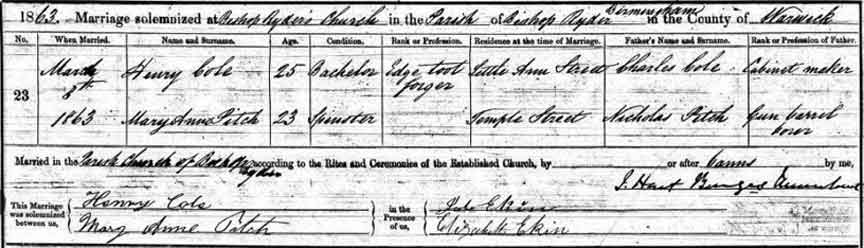 1863. Marriage solemnized at Bishop Ryder's Church in the Parish of Bishop Ryder Birmingham in the County of Warwick
No. When Married. Name and Surname. Age. Condition. Rank or Profession. Residence at the time of Marriage. Father's Name and Surname. Rank or Profession of Father.
23 March 8th 1863 Henry Cole 25 Bachelor Edge tool forger Little Ann Street Charles Cole Cabinet maker
Mary Anne Pitch 23 Spinster Temple Street Nicholas Pitch Gun barrel borer
Married in the Parish Church of Bishop Ryder according to the Rites and Ceremonies of the Established Church, by or after banns by me,
J. Hart Burges
This Marriage was solemnized between us, Henry Cole Mary Anne Pitch in the Presence of us, Ekin Elizabeth Ekin